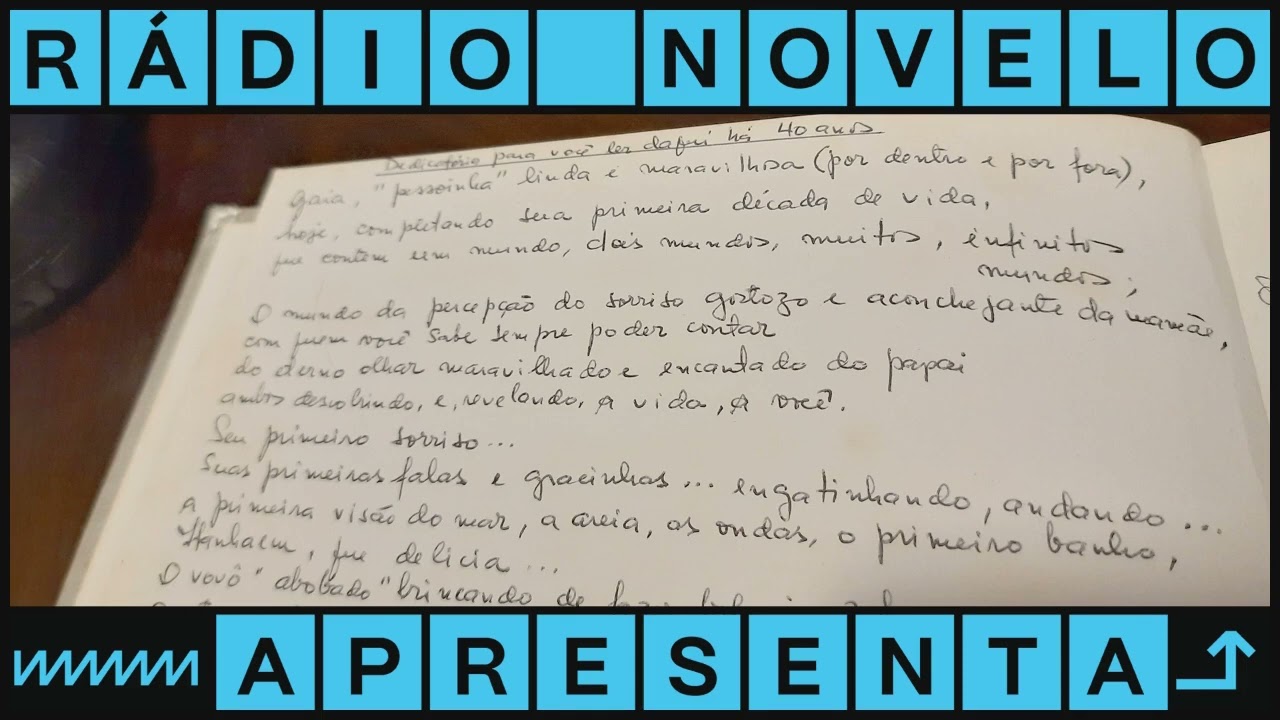 RÁDIO NOVELO
Dedicatória para você ler daqui há 40 anos
Gaia, "pessoinha" linda e maravilhosa (por dentro e por fora),
hoje, completando sua primeira década de vida,
que contém um mundo, dois mundos, muitos, infinitos
mundos;
O mundo da percepção do sorriso gostozo e aconchegante da mamãe,
com quem você sabe sempre poder contar
do terno olhar maravilhado e encantado do papai
ambos descobrindo, e, revelando, a vida, a você.
Seu primeiro sorriso...
Suas primeiras falas e gracinhas... engatinhando, andando...
a primeira visão do mar, a areia, as ondas, o primeiro banho,
Itanhaem, que delicia...
O vovô "abobado" brincando de
APRESENTA